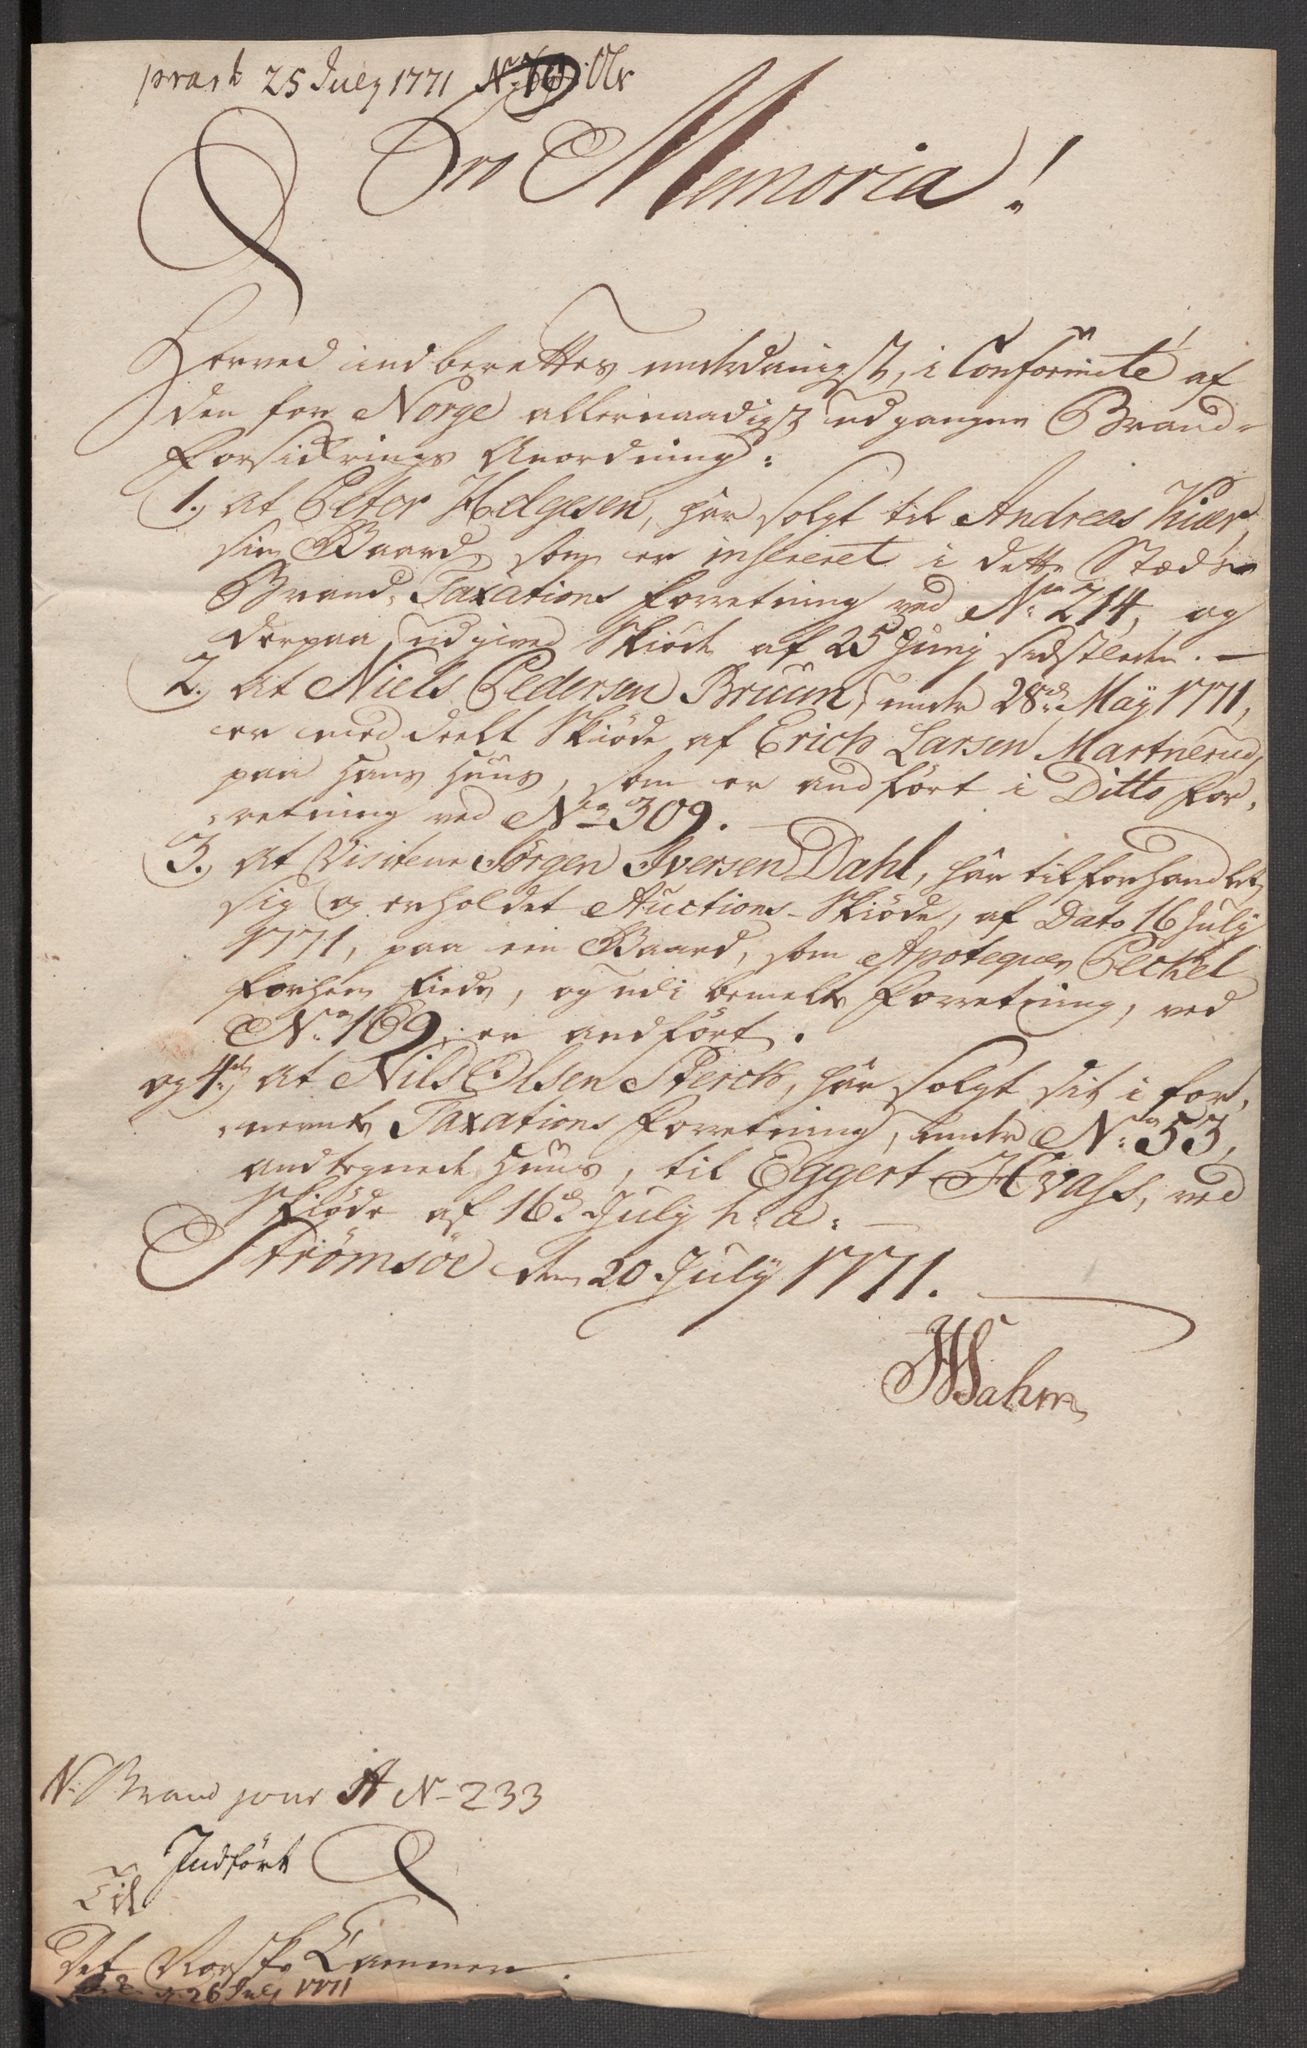 præst 25 July 1771
Pro Memoria!
Herved indberettes underdanigst, i Conformité af
den for Norge allernaadigst udgangne Brand-
Forsikrings Anordning:
1. at Peter Helgesen, har solgt til Andreas Kiær,
sin Gaard, som er inserieret i dette Stæds
Brand-Taxations Forretning ved No. 214, og
derpaa udgived Skiöde af 25 Junij sidstleden. —
2. at Niels Pedersen Bruun, under 28de May 1771,
er meddeelt Skiöde af Erich Larsen Martnerud,
paa hans Huus, som er andfört i Ditto For-
retning ved No. 309. —
3. at Visiteur Jörgen Iversen Dahl, har tilforhandlet
sig og erholdet Auctions-Skiöde, af Dato 16 July
1771, paa een Gaard, som Apotequer Peckel
forhen eiede, og udi bemelte Forretning, ved
No. 169, er andfört.
og 4de at Nils Olsen Sterch, har solgt sit i for-
nevnte Taxations Forretning, under No. 53,
andtegnede Huus, til Eggert Hvass, ved
Skiöde af 16de July h: a: —
Strömsöe den 20 July 1771.
N. Brand jour A No 233
Indfört
Til
Det Norske Cammer.
26 July 1771